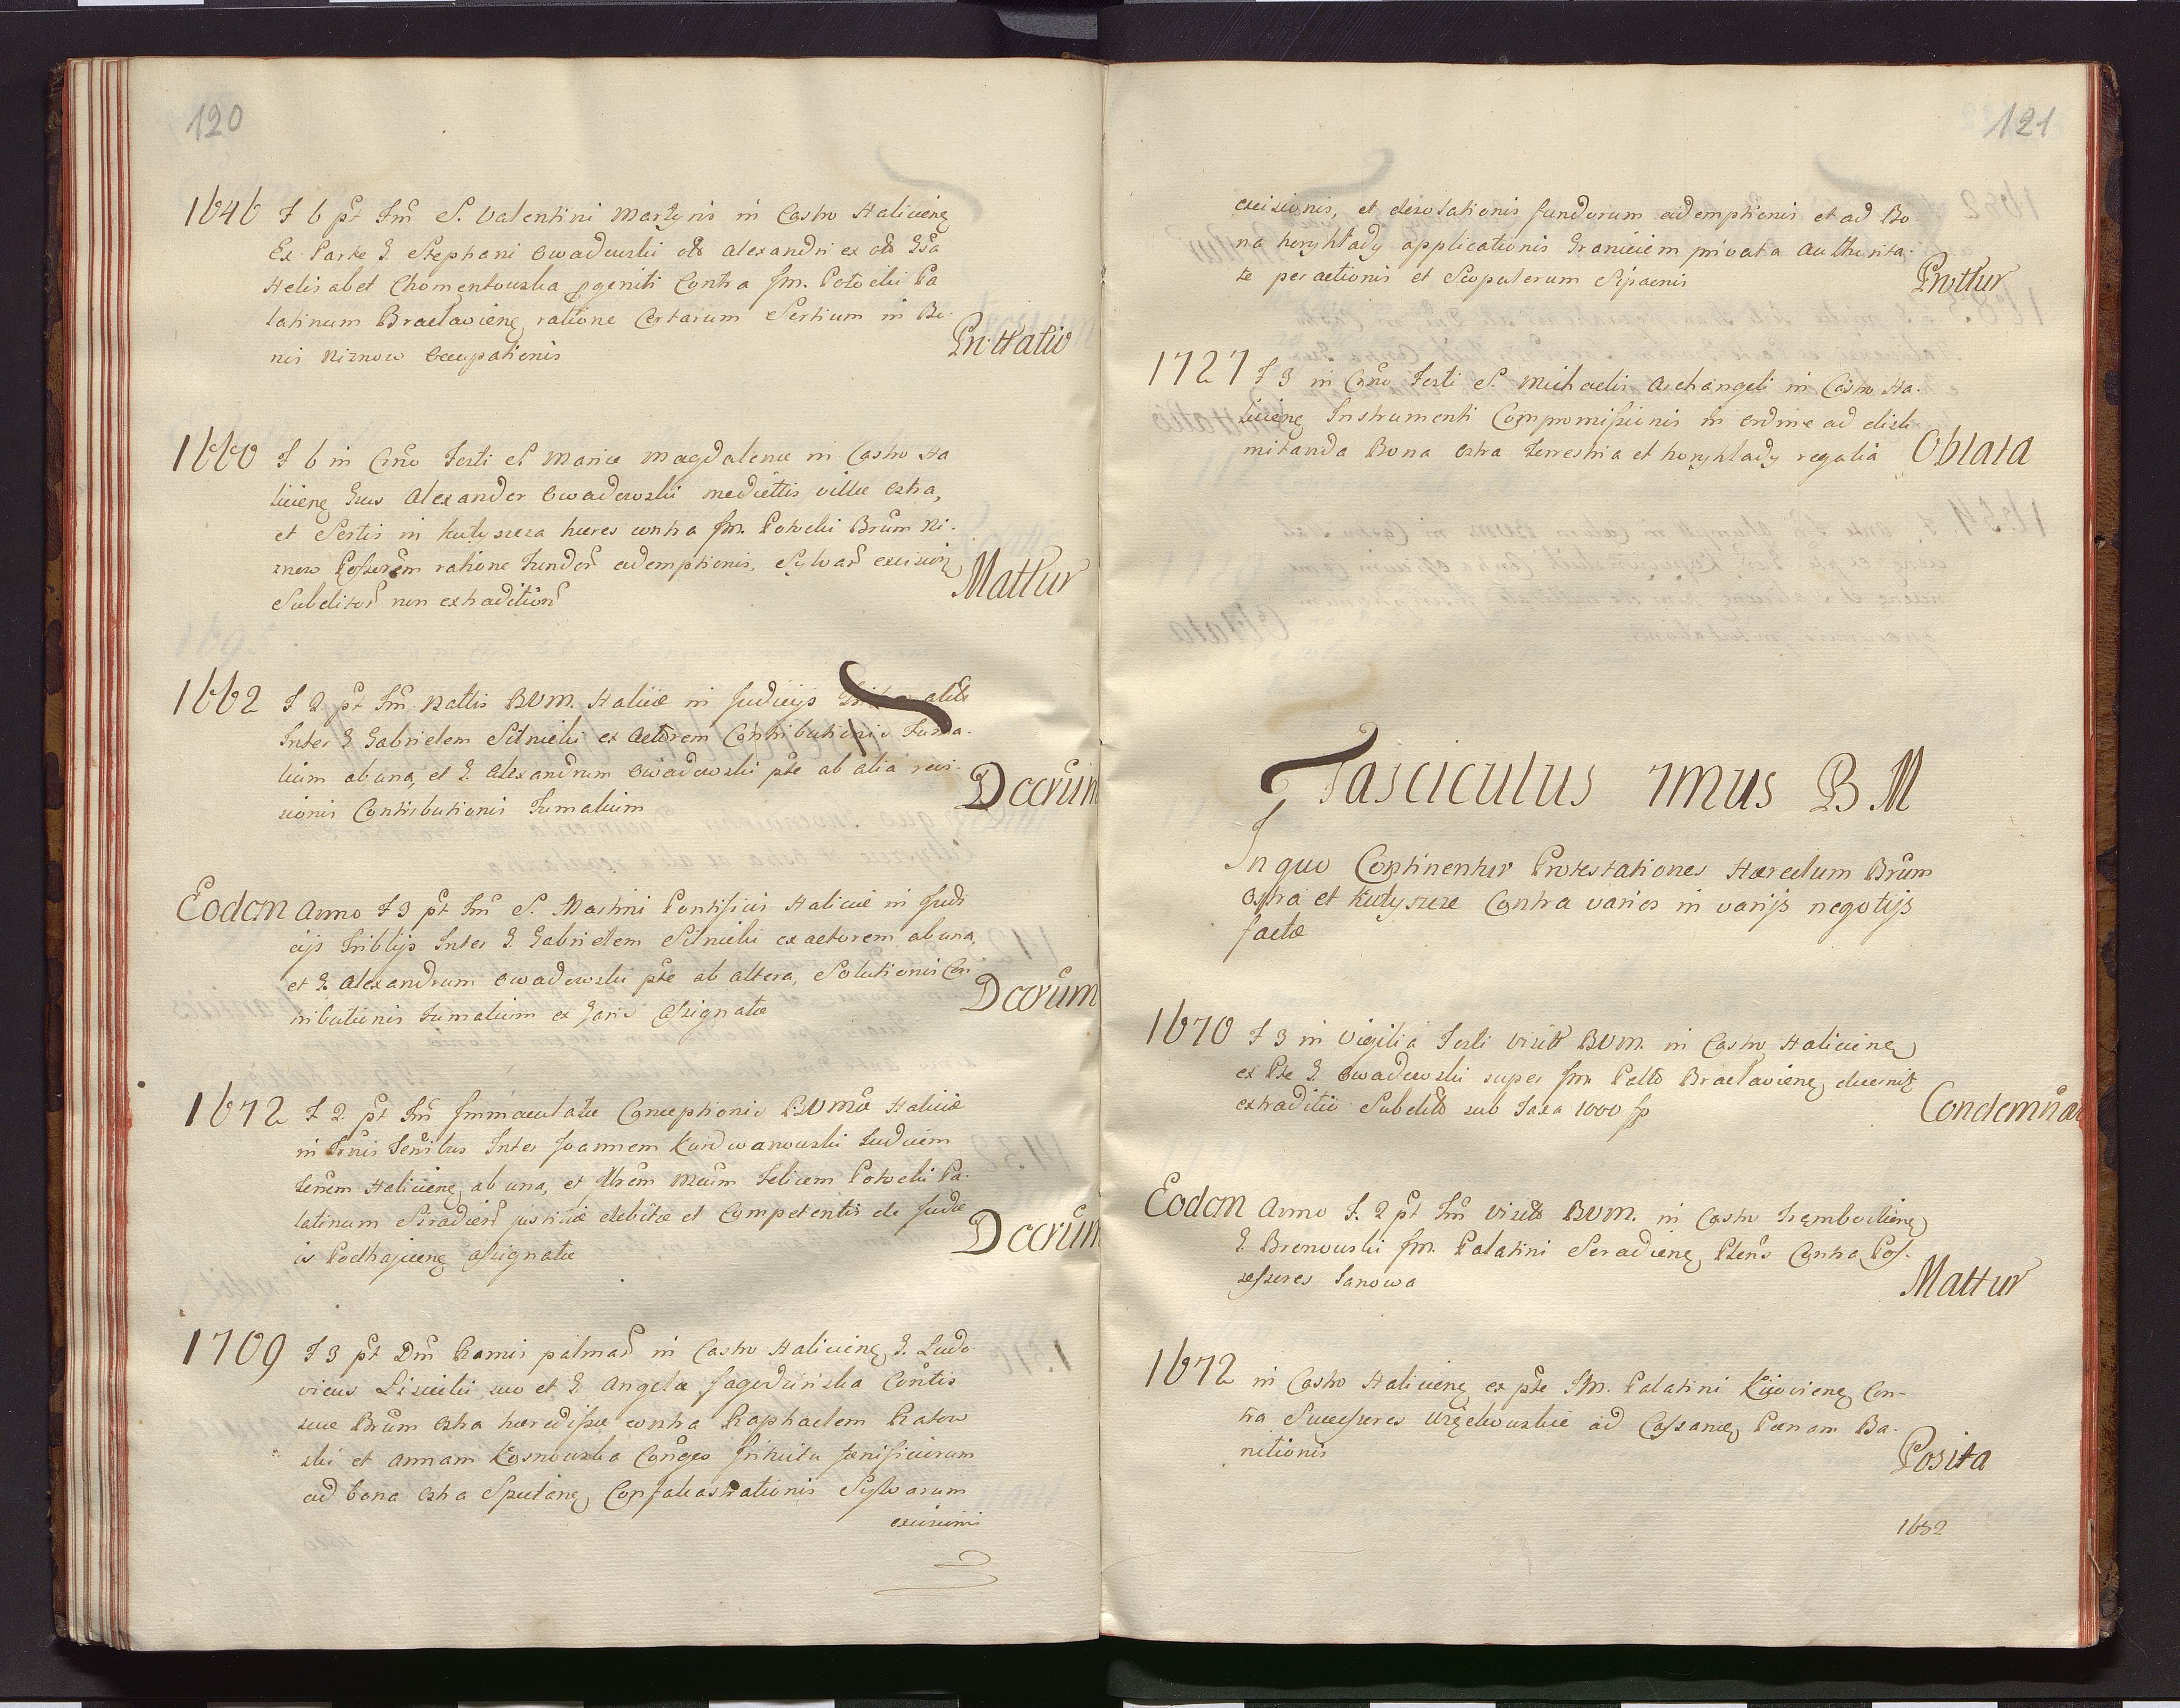 120
1646 F 6 pt Fm S. Valentini Martyris in Castro Haliciens
Ex Parte G Stephani Owadowski olo Alexandri ex olo Gsa
Helisabet Chomentowska pgeniti Contra Jm. Potocki Pa
latinum Braclaviens ratione Certarum Sortium in Bo-
nis Niznow Occupationis
Pn: Hatio
1660 F 6 in Crño Festi S. Maria Magdalena in Castro Ha
liciens Gsus Alexander Owadowski medietis villae Ostra,
et Sortis in Kutyszcza haeres contra Jm. Potocki Brum Ni-
znow Possorem ratione Fundor ademptionis, Sylvar excision
Subditor non extradition
Mattur
1662 F 2 pt Fm Nattis BVM. Halicia in Judicijs
Inter G Gabrielem Silnicki exactorem Contributionis Fuma-
lium ab una, et G Alexandrum Owadowski pte ab alia revi-
sionis Contributionis Fumalium
Dccrum
Eodem Anno F 3 pt Fm S. Martini Pontificis Haliciae in Judi
cijs Triblijs Inter G Gabrielem Silnicki exactorem ab una,
et G Alexandrum Owadowski pte ab altera, Solutionis Con
tributionis Fumalium ex Janio Assignatae
Dccrum
1672 F 2 pt Fm Immaculatae Conceptionis BVMæ Haliciæ
in Trnis Tensibus Inter Joannem Kurdwanowski Judicem
Terrem Haliciens ab una, et Mrem Mcum Felicem Potocki Pa-
latinum Siradien justitiæ debitæ et Competentis de Judic
is Podhajecens assignatae
Dccrum
1709 F 3 pt Dm Ramis palmar in Castro Haliciens G. Ludo
vicus Lisiecki suo et G Angelæ Jagodzinska Contis
suae Brum Ostra haeredissae contra Raphaelem Ratow
ski et Annam Kosnowska Conges Tritutu fanisiciorum
ad bona Ostra Spectans Confalcastrationis Sylvarum
excisionis
121
excisionis, et desolationis fundorum ademptionis et ad Bo-
na horyhlady applicationis Graniciem privata Authorita-
te peractionis et Scopulorum Sipaonis
Pnttur
1727 F 3 in Crño Festi S. Michaelis Archangeli in Castro Ha-
liciens Instrumenti Compromissionis in ordine ad disli
mitanda Bona Ostra terrestria et horyhlady regalia
Oblata
Fasciculus 7mus BM
In quo Continentur Protestationes Haeredum Brum
Ostra et Kutyszcze Contra varios in varijs negotijs
factae
1670 F 3 in Vigilia Festi Visit BVM. in Castro Haliciens
ex Pte G Owadowski super Jm. Pallto Braclaviens decernit
extraditio Subdit sub Taxa 1000 fp
Condemna
Eodem Anno F. 2 pt Fm Visito BVM. in Castro Trembowliens
G Bronowski Jm. Palatini Seradiens Ptens Contra Pos-
sessores Janowa
Mattur
1672 in Castro Haliciens ex pte Jm. Palatini Kijoviens Con-
tra Successores Urzędowskie ad Cassanæ Paenam Ba-
nitionis
Posita
1682